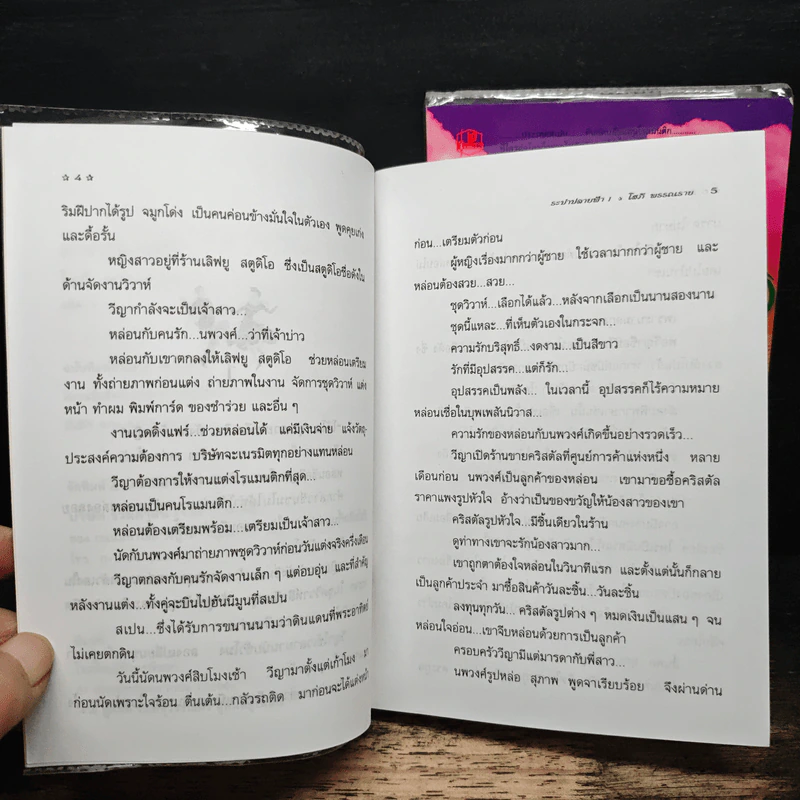 ☆ 4 ☆
ริมฝีปากได้รูป จมูกโด่ง เป็นคนค่อนข้างมั่นใจในตัวเอง พูดคุยเก่ง
และดื้อรั้น
หญิงสาวอยู่ที่ร้านเลิฟยู สตูดิโอ ซึ่งเป็นสตูดิโอชื่อดังใน
ด้านจัดงานวิวาห์
วีญากำลังจะเป็นเจ้าสาว...
หล่อนกับคนรัก...นพวงศ์...ว่าที่เจ้าบ่าว
หล่อนกับเขาตกลงให้เลิฟยู สตูดิโอ ช่วยหล่อนเตรียม
งาน ทั้งถ่ายภาพก่อนแต่ง ถ่ายภาพในงาน จัดการชุดวิวาห์ แต่ง
หน้า ทำผม พิมพ์การ์ด ของชำร่วย และอื่น ๆ
งานเวดดิ้งแฟร์...ช่วยหล่อนได้ แค่มีเงินจ่าย แจ้งวัตถุ-
ประสงค์ความต้องการ บริษัทจะเนรมิตทุกอย่างแทนหล่อน
วีญาต้องการให้งานแต่งโรแมนติกที่สุด...
หล่อนเป็นคนโรแมนติก...
หล่อนต้องเตรียมพร้อม...เตรียมเป็นเจ้าสาว...
นัดกับนพวงศ์มาถ่ายภาพชุดวิวาห์ก่อนวันแต่งจริงครึ่งเดือน
วีญาตกลงกับคนรักจัดงานเล็ก ๆ แต่อบอุ่น และที่สำคัญ
หลังงานแต่ง...ทั้งคู่จะบินไปฮันนีมูนที่สเปน
สเปน...ซึ่งได้รับการขนานนามว่าดินแดนที่พระอาทิตย์
ไม่เคยตกดิน
วันนี้นัดนพวงศ์สิบโมงเช้า วีญามาตั้งแต่เก้าโมง มา
ก่อนนัดเพราะใจร้อน ตื่นเต้น...กลัวรถติด มาก่อนจะได้แต่งหน้า
ระบำปลายฟ้า 1 ๑ โสภี พรรณราย 5
ก่อน...เตรียมตัวก่อน
ผู้หญิงเรื่องมากกว่าผู้ชาย ใช้เวลามากกว่าผู้ชาย และ
หล่อนต้องสวย...สวย...
ชุดวิวาห์...เลือกได้แล้ว...หลังจากเลือกเป็นนานสองนาน
ชุดนี้แหละ...ที่เห็นตัวเองในกระจก...
ความรักบริสุทธิ์...งดงาม...เป็นสีขาว
รักที่มีอุปสรรค...แต่ก็รัก...
อุปสรรคเป็นพลัง... ในเวลานี้ อุปสรรคก็ไร้ความหมาย
หล่อนเชื่อในบุพเพสันนิวาส...
ความรักของหล่อนกับนพวงศ์เกิดขึ้นอย่างรวดเร็ว...
วีญาเปิดร้านขายคริสตัลที่ศูนย์การค้าแห่งหนึ่ง หลาย
เดือนก่อน นพวงศ์เป็นลูกค้าของหล่อน เขามาขอซื้อคริสตัล
ราคาแพงรูปหัวใจ อ้างว่าเป็นของขวัญให้น้องสาวของเขา
คริสตัลรูปหัวใจ...มีชิ้นเดียวในร้าน
ดูท่าทางเขาจะรักน้องสาวมาก...
เขาถูกตาต้องใจหล่อนในวินาทีแรก และตั้งแต่นั้นก็กลาย
เป็นลูกค้าประจำ มาซื้อสินค้าวันละชิ้น...วันละชิ้น
ลงทุนทุกวัน... คริสตัลรูปต่าง ๆ หมดเงินเป็นแสน ๆ จน
หล่อนใจอ่อน...เขาจีบหล่อนด้วยการเป็นลูกค้า
ครอบครัววีญามีแต่มารดากับพี่สาว...
นพวงศ์รูปหล่อ สุภาพ พูดจาเรียบร้อย จึงผ่านด่าน